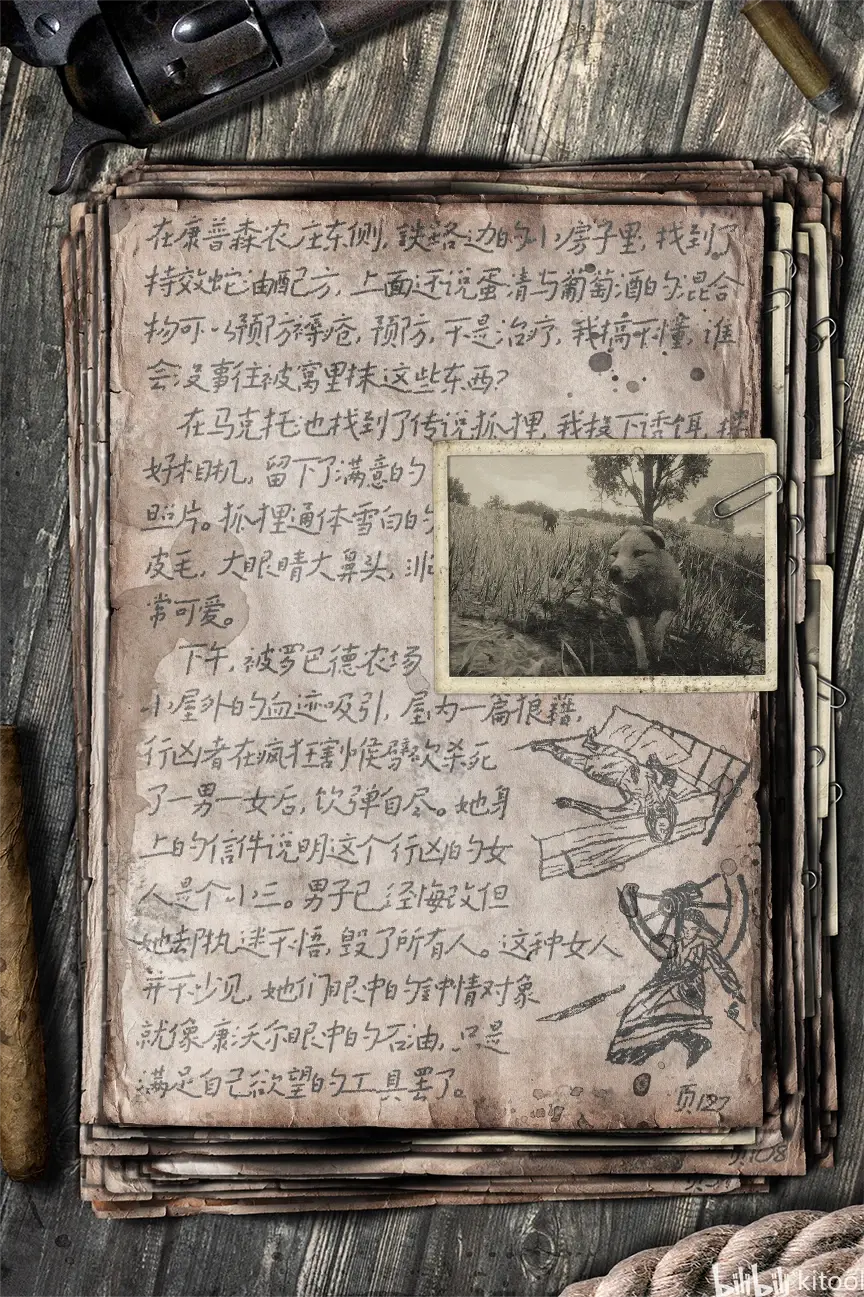 在康普森农庄东侧,铁路边的小房子里,找到了
特效蛇油配方,上面还说蛋清与葡萄酒的混合
物可以预防褥疮,预防,不是治疗,我搞不懂,谁
会没事往被窝里抹这些东西?
在马克托也找到了传说抓狸,我投下诱饵,摆
好相机,留下了满意的
照片。抓狸通体雪白的
皮毛,大眼睛大鼻头,非
常可爱。
下午,被罗巴德农场
小屋外的血迹吸引,屋内一篇狼籍,
行凶者在疯狂割喉劈砍杀死
了一男一女后,饮弹自尽。她身
上的信件说明这个行凶的女
人是个小三。男子已经悔改但
她却执迷不悟,毁了所有人。这种女人
并不少见,她们眼中的钟情对象
就像康沃尔眼中的石油,只是
满足自己欲望的工具罢了。
页127
页108
bilibili kitool